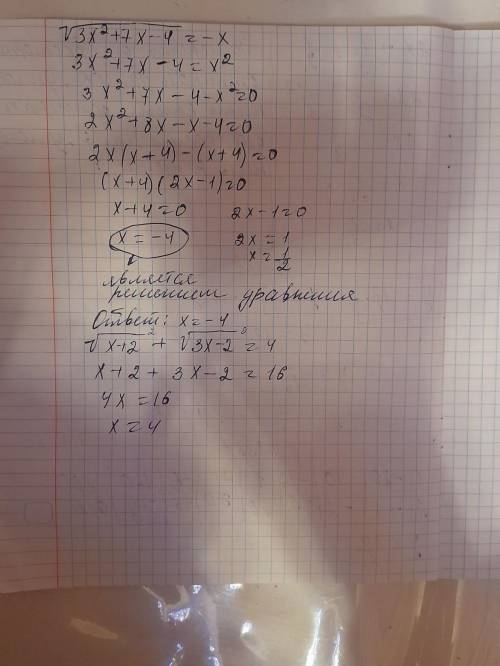 √3x²+7x-4 = -x
3x²+7x-4 = x²
3x²+7x-4-x²=0
2x²+8x-x-4=0
2x(x+4)-(x+4)=0
(x+4)(2x-1)=0
x+4=0 2x-1=0
x=-4 2x=1
x=1/2
является
решением уравнения
Ответ: x=-4
√x+2² + √3x-2² = 4
x+2 + 3x-2 = 16
4x=16
x=4